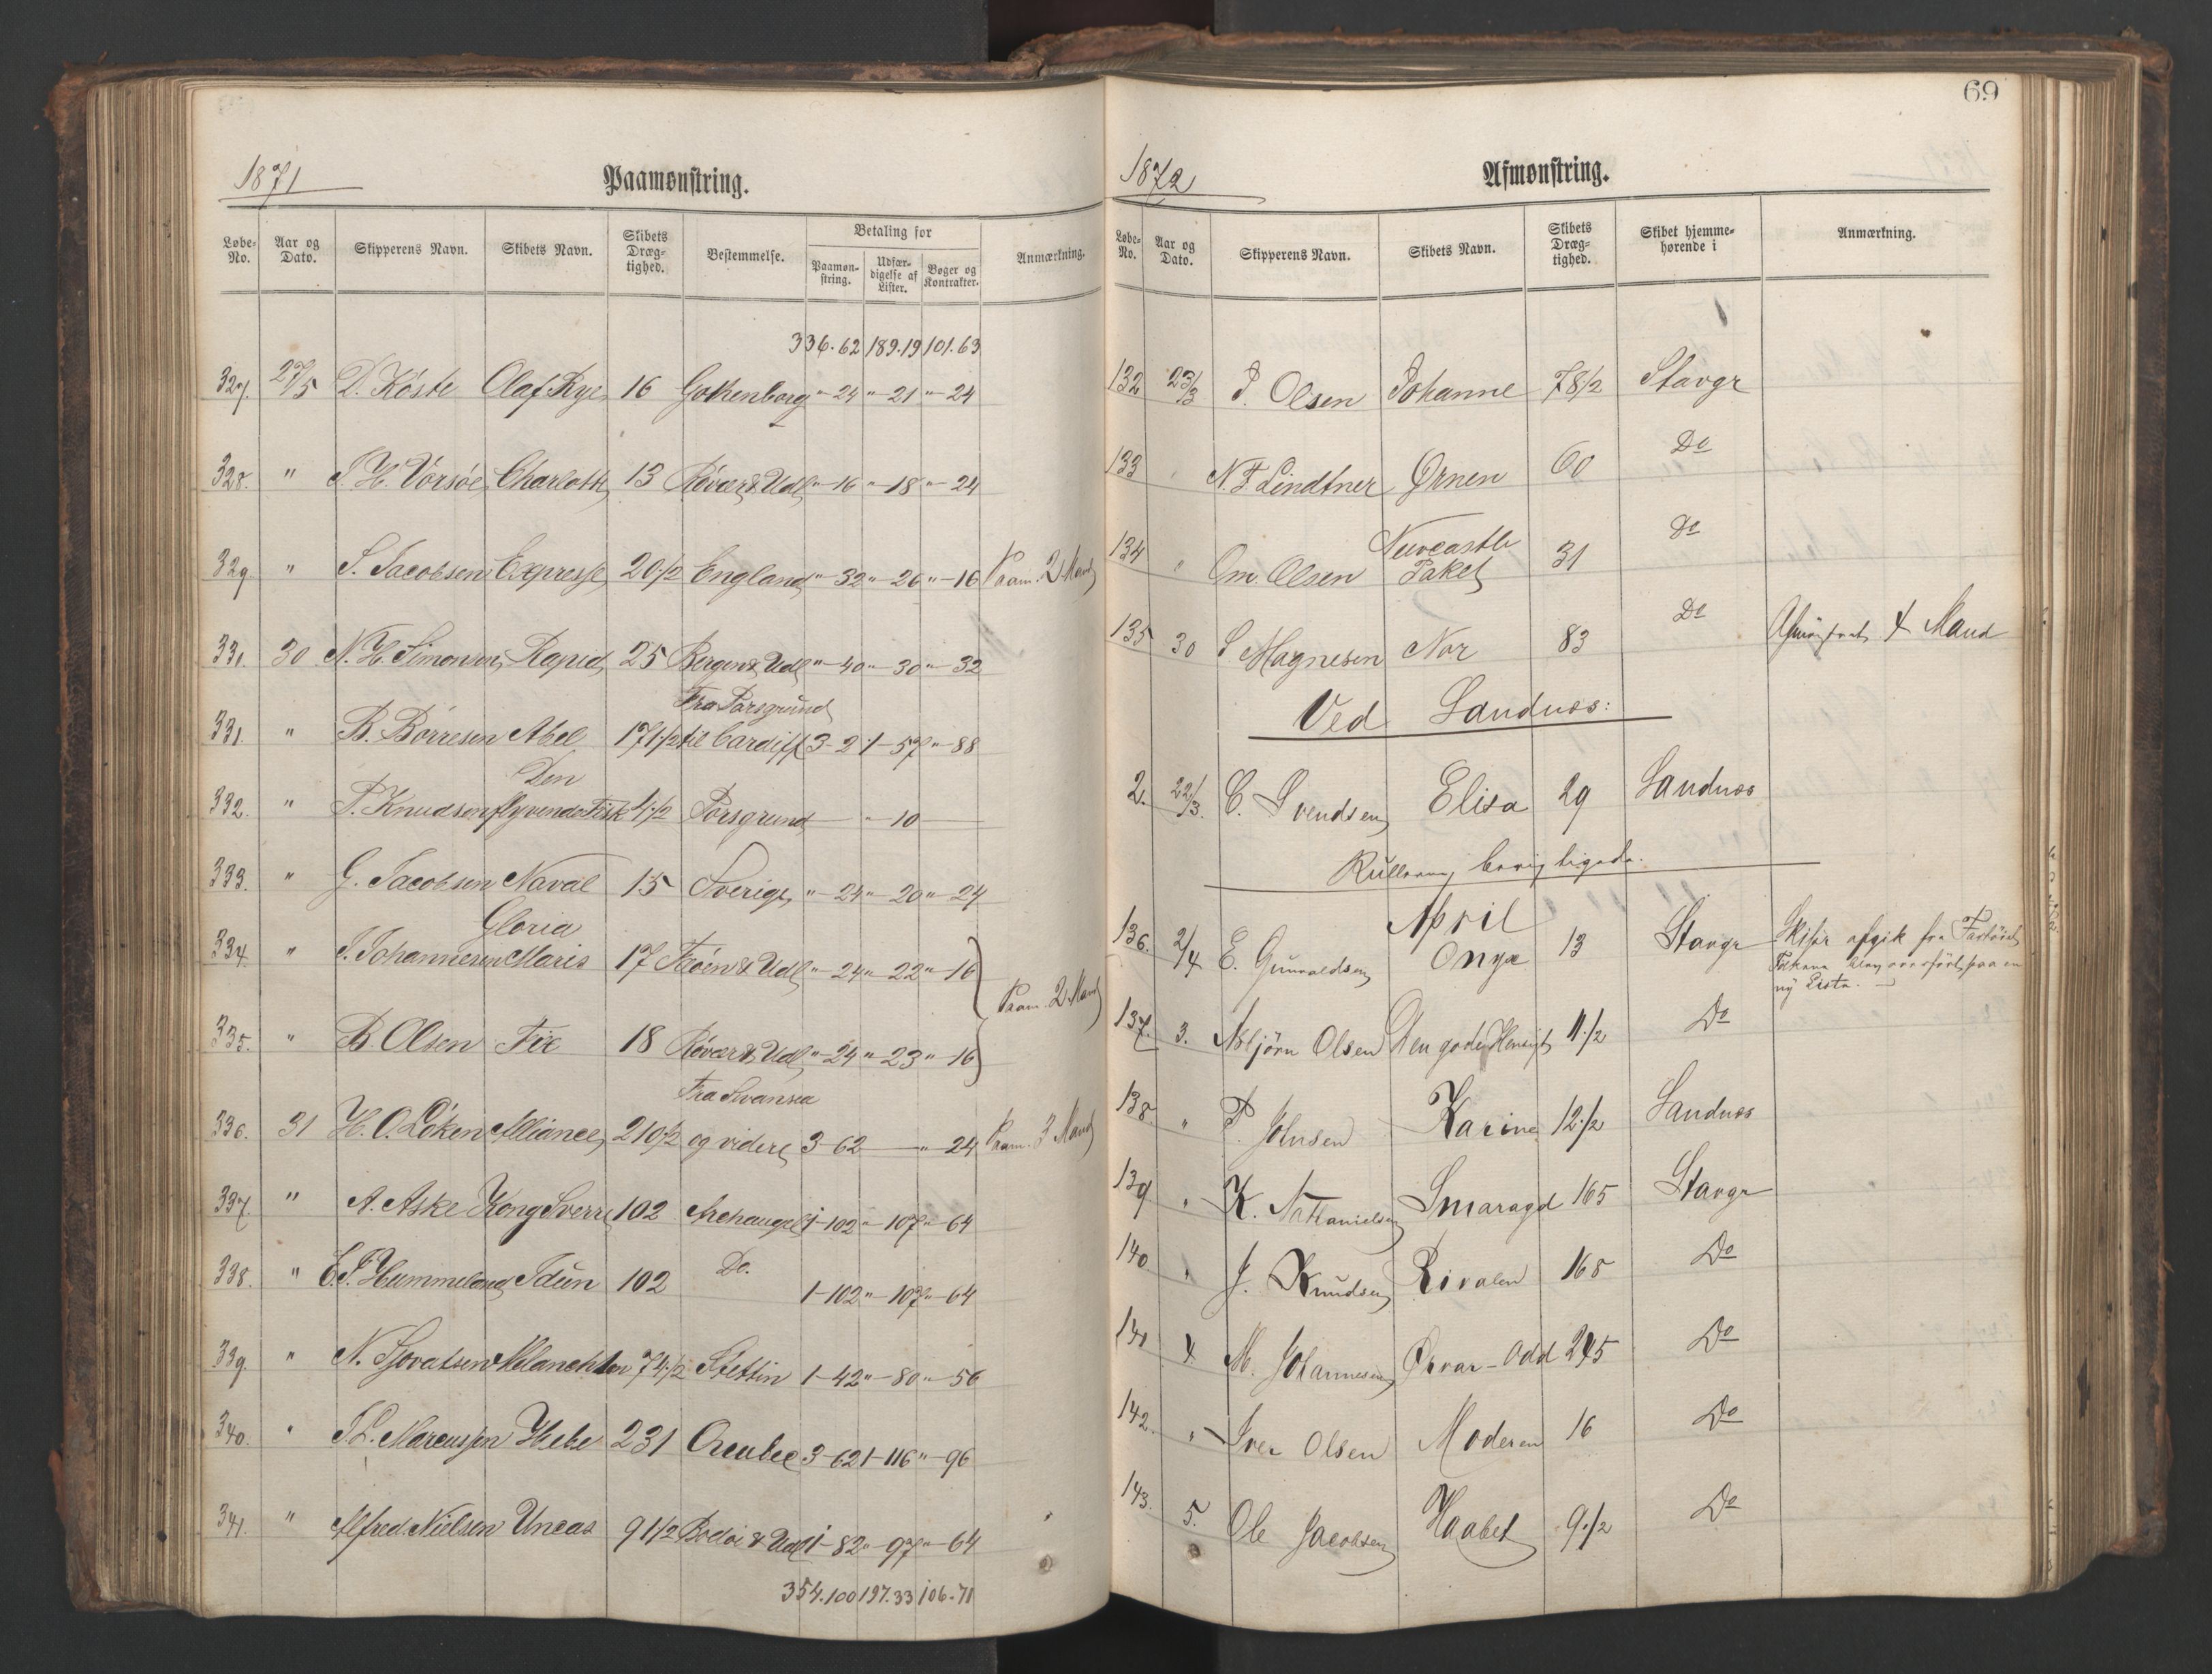 1871
Paamønstring.
Løbe-No. Aar og Dato. Skipperens Navn. Skibets Navn. Skibets Dræg-tighed. Bestemmelse. Betaling for Paamøn-string. Udfær-digelse af Lister. Bøger og Kontrakter. Anmærkning.
336.62 189.19 101.63
327. 27/5 D. Köste Olaf Rye 16 Gothenborg "-24 "-21 "-24
328. " J. H. Vörsöe Charlotte 13 Röver & Udl "-16 "-18 "-24
329 " S. Jacobsen Express 20 1/2 England "-32 "-26 "-16 Paam. 2 Mand
331. 30 N. H. Simonsen Rapid 25 Bergen & Udl "-40 "-30 "-32
Fra Porsgrund
331. " B. Börresen Abel 171 1/2 til Cardiff 3-2 1-57 "-88
Den
332. " P. Knudsen flyvende Fisk 4 1/2 Porsgrund — "-10 —
333. " G. Jacobsen Naval 15 Sverige "-24 "-20 "-24
Gloria
334. " J. Johannesen Maris 17 & Udl "-24 "-22 "-16
Paam. 2 Mand
335. " B. Olsen Fix 18 Röver & Udl "-24 "-23 "-16
Fra Swansea
336. 31 H. O. Löken Alliance 210 1/2 og videre 3-62 — "-24 Paam. 3 Mand
337. " A. Aske Kong Sverre 102 Archangel 1-102 "-107 "-64
338. " E. T. Hummeland Idun 102 Do. 1-102 "-107 "-64
339. " N. Melanchton 74 1/2 Stettin 1-42 "-80 "-56
340. " T. L. Marcussen Hebe 231 3-62 1-116 "-96
341. " Alfred Nielsen Uncas 91 1/2 & Udl 1-82 "-97 "-64
354.100 197.33 106.71
69
1872
Afmønstring.
Løbe-No. Aar og Dato. Skipperens Navn. Skibets Navn. Skibets Dræg-tighed. Skibet hjemme-hørende i Anmærkning.
132 23/3 P. Olsen Johanne 78 1/2 Stavgr
133 " N. F. Lindtner Ørnen 60 Do
Newcastle
134 " Om. Olsen Paket 31 Do
135 30 S Magnesen Nor 83 Do Afmönstret 4 Mand
Ved Sandnæs:
2. 22/3. C. Svendsen Elisa 29 Sandnæs
April
136. 2/4 E. Gunvaldsen Onyx 13 Stavgr Skibr afgik fra Fartöiet
Folkene blev overfört paa en
ny Liste.
137. 3. Asbjörn Olsen Den gode Hensigt 11 1/2 Do
138. " P. Johnsen Karine 12 1/2 Sandnæs
139 " K. Nathanielsen Smaragd 165 Stavgr
140. " J. Knudsen Rivalen 168 Do
141 4 M. Johannesen Ørvar-Odd 245 Do
142. " Iver Olsen Moderen 16 Do
143. 5. Ole Jacobsen Haabet 9 1/2 Do